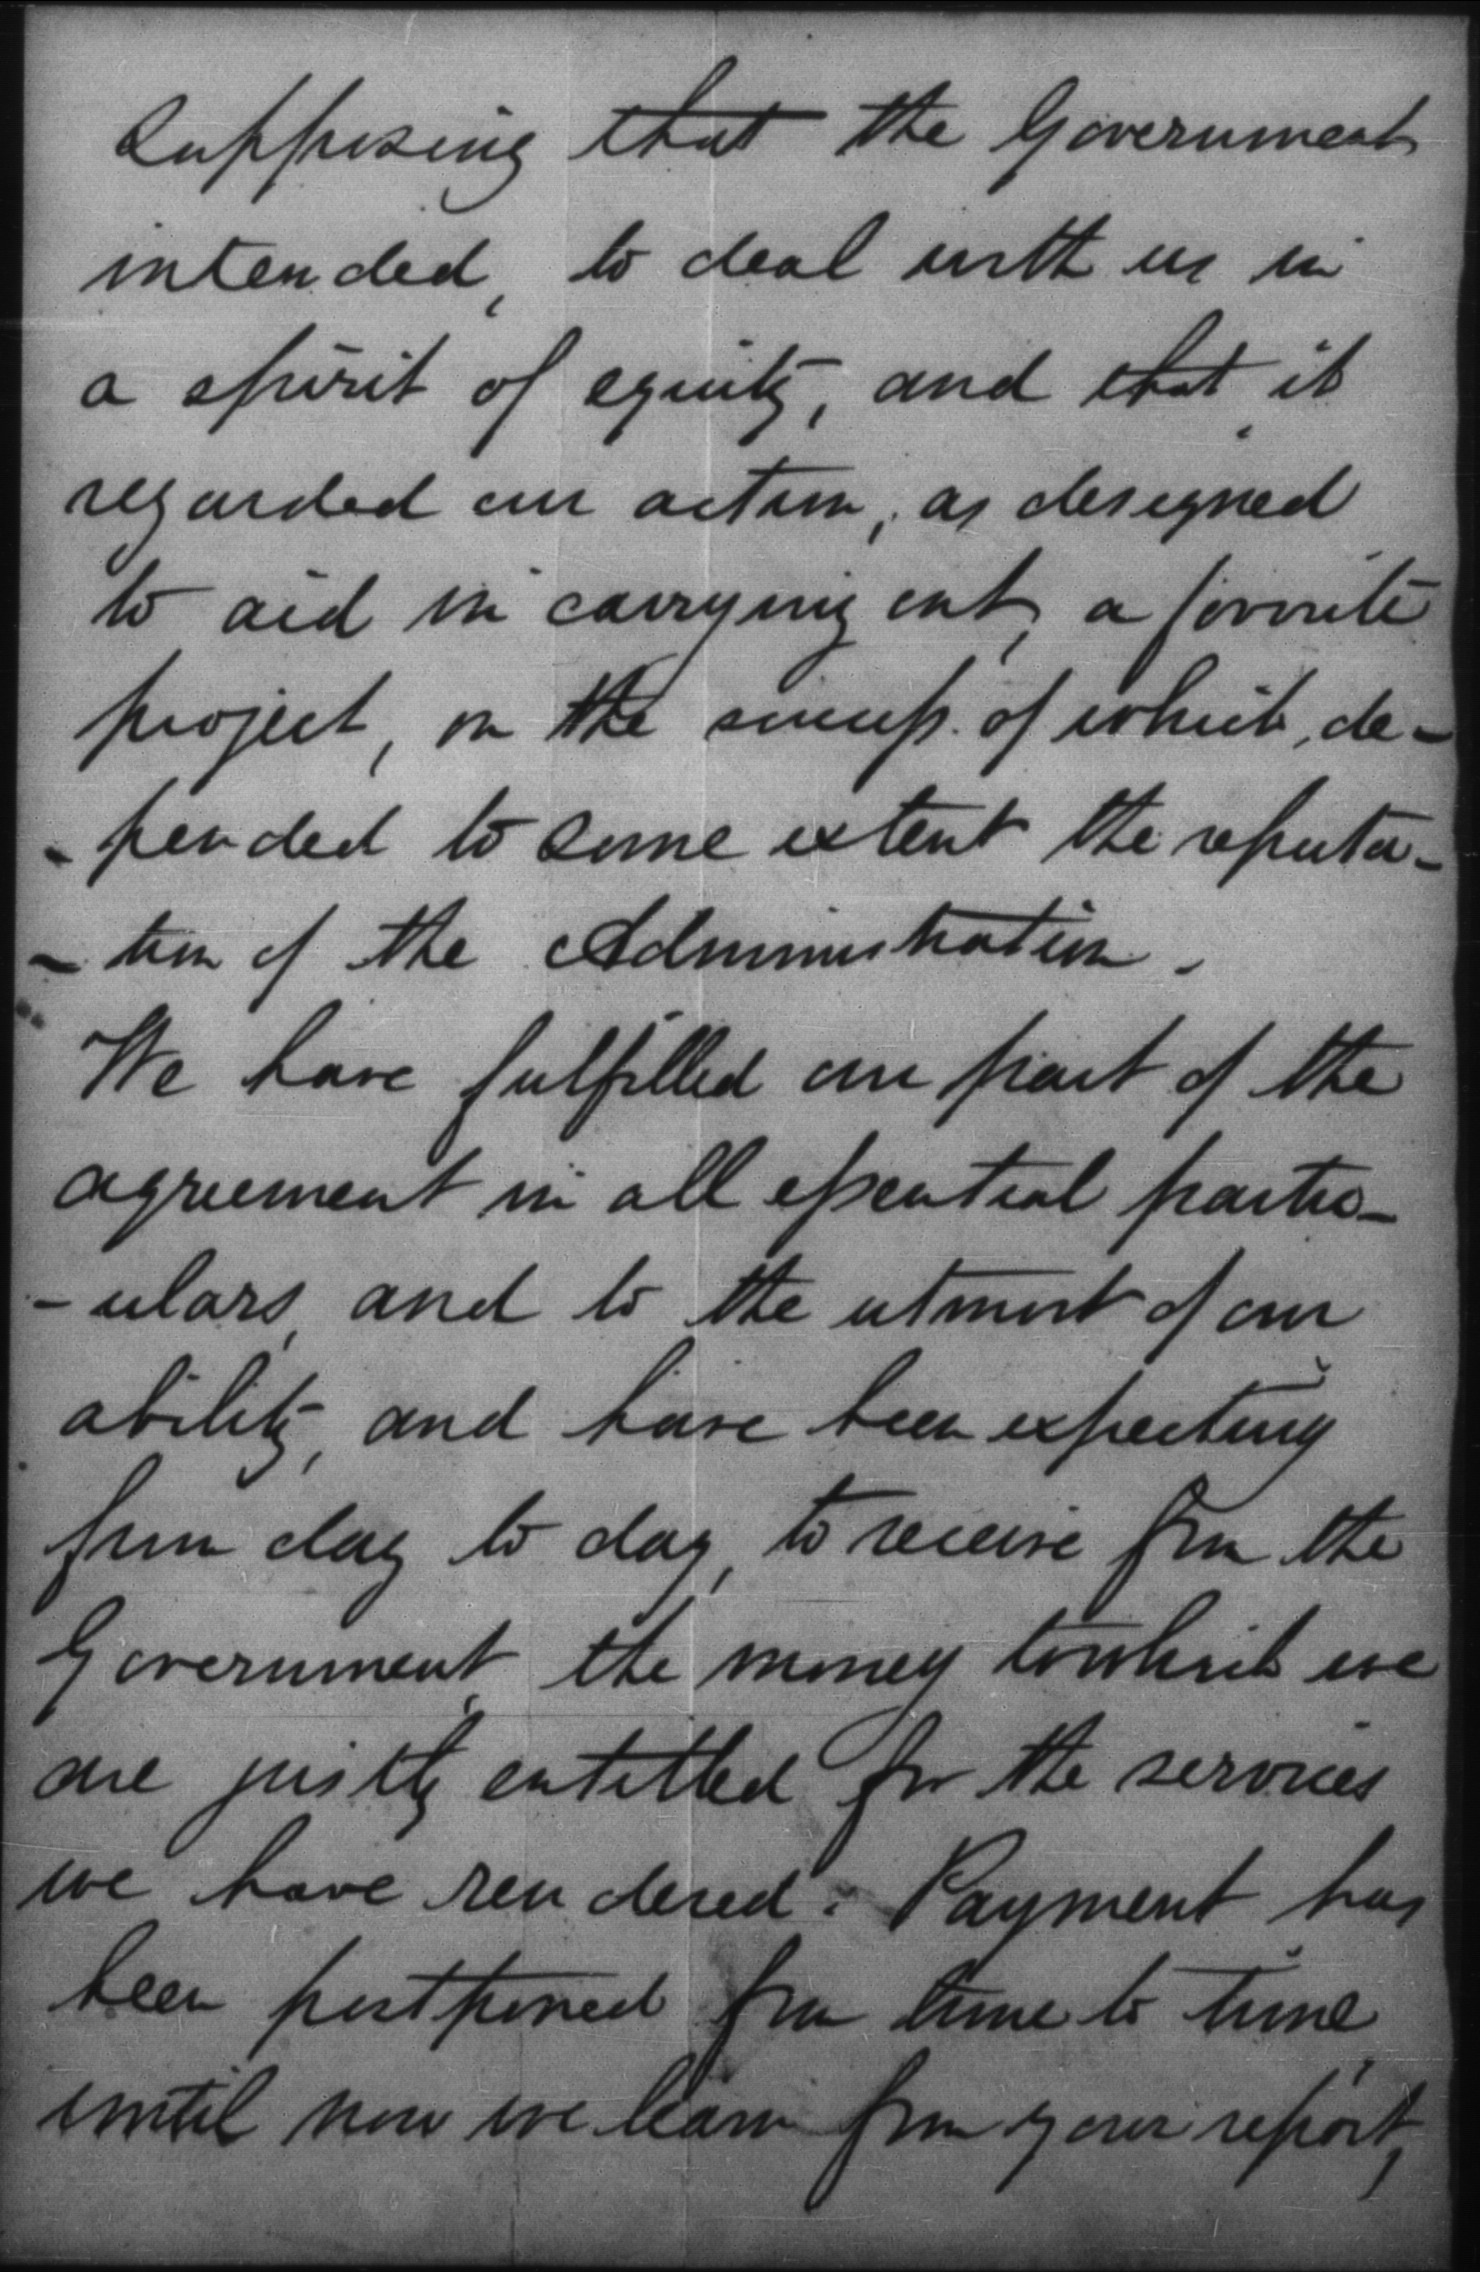 Supposing that the Government
intended, to deal with us in
a spirit of equity, and that, it
regarded our action, as designed
to aid in carrying out, a favorite
project, on the success of which, de-
-pended to some extent the reputa-
-tion of the Administration.
We have fulfilled our part of the
agreement in all essential partic-
-ulars, and to the utmost of our
ability, and have been expecting
from day to day, to receive from the
Government, the money to which we
are justly entitled for the services
we have rendered. Payment has
been postponed from time to time,
until now we learn from your report,